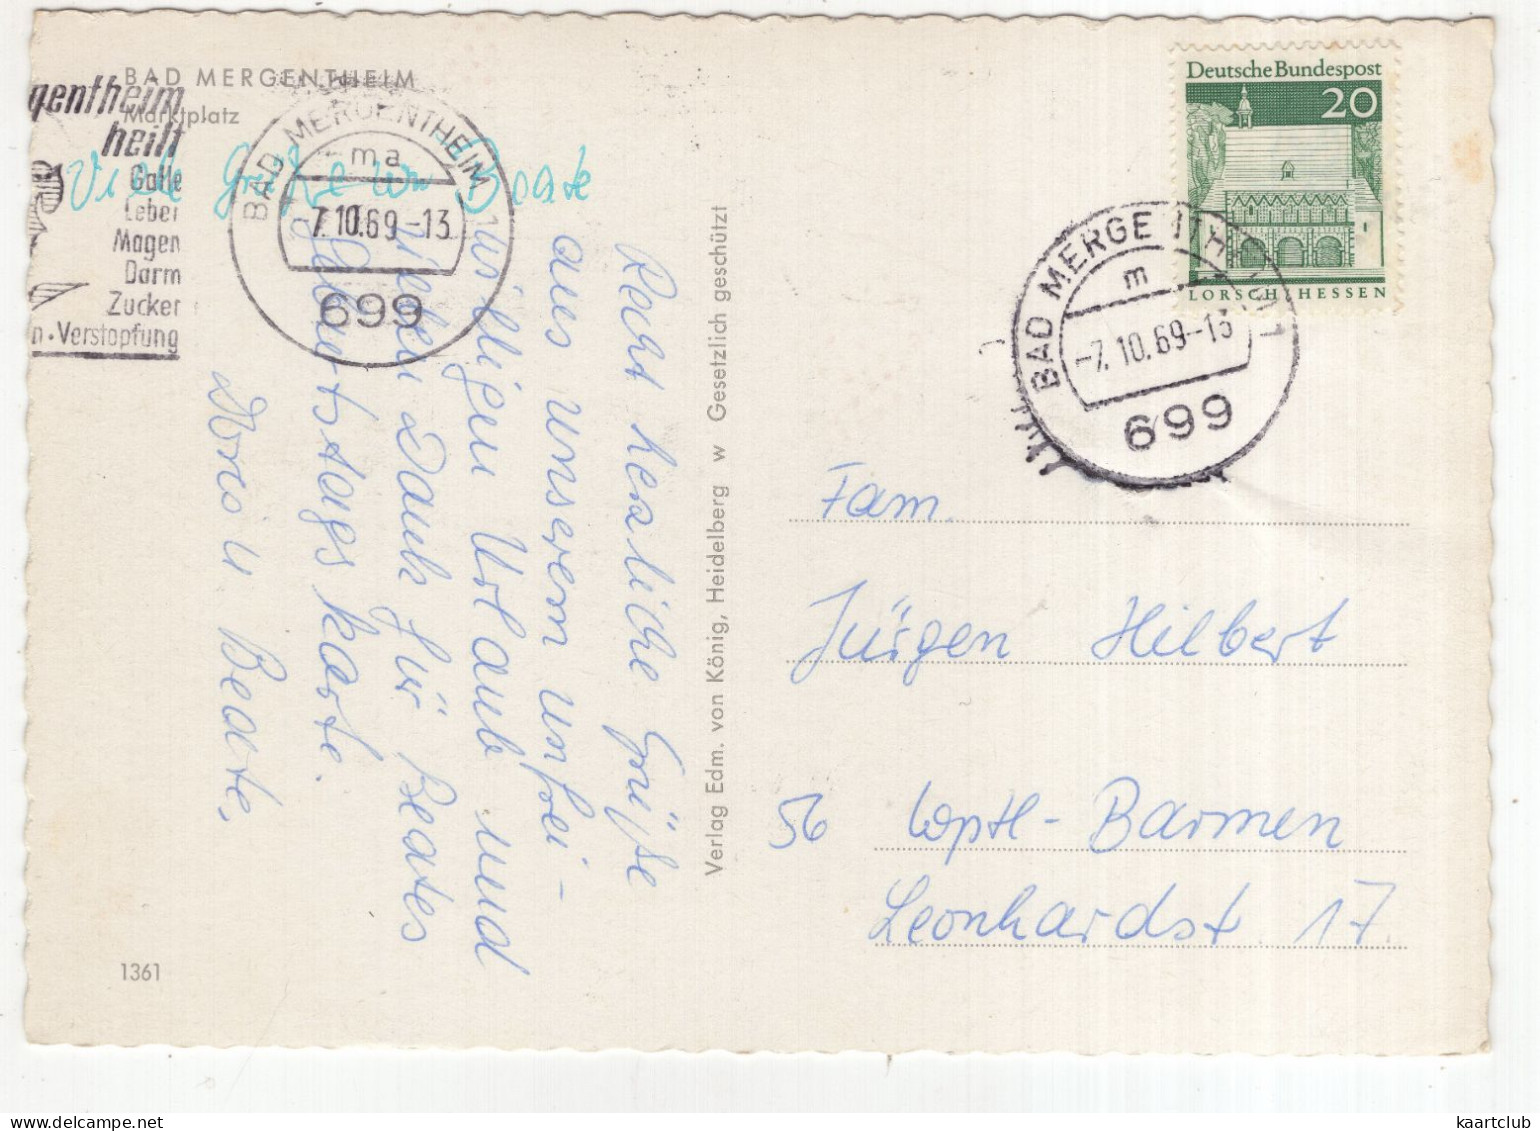 BAD MERGENTHEIM
Marktplatz
gentheim
heilt
Galle
Leber
Magen
Darm
Zucker
n·Verstopfung
BAD MERGENTHEIM
ma
7.10.69-13
699
Viele Grüße von Beate
Recht herzliche Grüße
aus unserem unfrei-
willigen Urlaub und
vielen Dank für Beates
Geburtstagskarte.
Doris u Beate,
1361
Verlag Edm. von König, Heidelberg w Gesetzlich geschützt
Deutsche Bundespost
20
LORSCH/HESSEN
BAD MERGENTHEIM 1
m
-7.10.69-13
699
Fam.
Jürgen Hilbert
56 Wptl-Barmen
Leonhardst 17
kaartclub